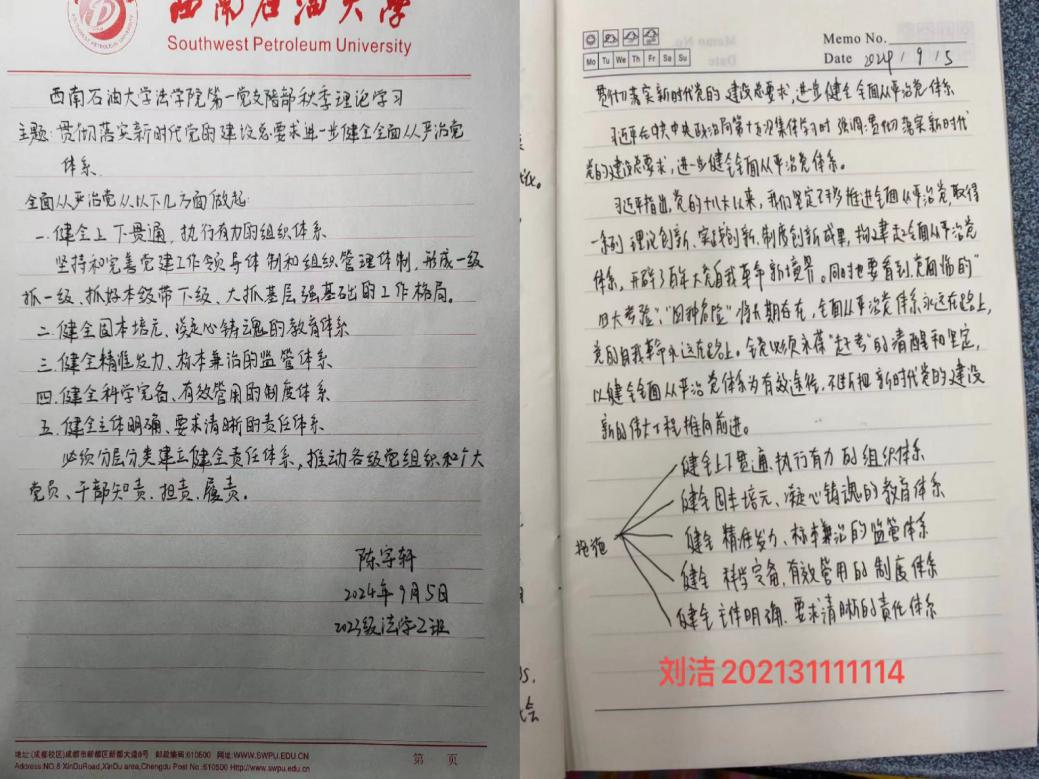 西南石油大学
Southwest Petroleum University
西南石油大学法学院第一党支部秋季理论学习
主题:贯彻落实新时代党的建设总要求进一步健全全面从严治党
体系
全面从严治党从以下几方面做起:
一.健全上下贯通、执行有力的组织体系
坚持和完善党建工作领导体制和组织管理体制,形成一级
抓一级、抓好本级带下级、大抓基层强基础的工作格局。
二.健全固本培元、凝心铸魂的教育体系
三.健全精准发力、标本兼治的监管体系
四.健全科学完备、有效管用的制度体系
五.健全主体明确、要求清晰的责任体系
必须分层分类建立健全责任体系,推动各级党组织和广大
党员、干部知责、担责、履责。
陈宇轩
2024年9月5日
2023级法学2班
地址:(成都校区)成都市新都区新都大道8号 邮政编码:610500 网址:WWW.SWPU.EDU.CN
Address:NO.8 XinDuRoad,XinDu area,Chengdu Post No.:610500 Http://www.swpu.edu.cn
第 页
Memo No.
Mo Tu We Th Fr Sa Su
Date 2024 / 9 / 5
贯彻落实新时代党的建设总要求,进步健全全面从严治党体系
习近平在中共中央政治局第十五次集体学习时强调:贯彻落实新时代
党的建设总要求,进一步健全全面从严治党体系。
习近平指出,党的十八大以来,我们坚定不移推进全面从严治党,取得
一系列理论创新、实践创新、制度创新成果,构建起全面从严治党
体系,开辟了百年大党自我革命新境界。同时也要看到,党面临的"
四大考验"、"四种危险"将长期存在,全面从严治党体系永远在路上,
党的自我革命永远在路上。全党必须永葆"赶考"的清醒和坚定,
以健全全面从严治党体系为有效途径,不断把新时代党的建设
新的伟大工程推向前进。
措施
健全上下贯通、执行有力的组织体系
健全固本培元、凝心铸魂的教育体系
健全精准发力、标本兼治的监管体系
健全科学完备,有效管用的制度体系
健全主体明确、要求清晰的责任体系
刘洁202131111114